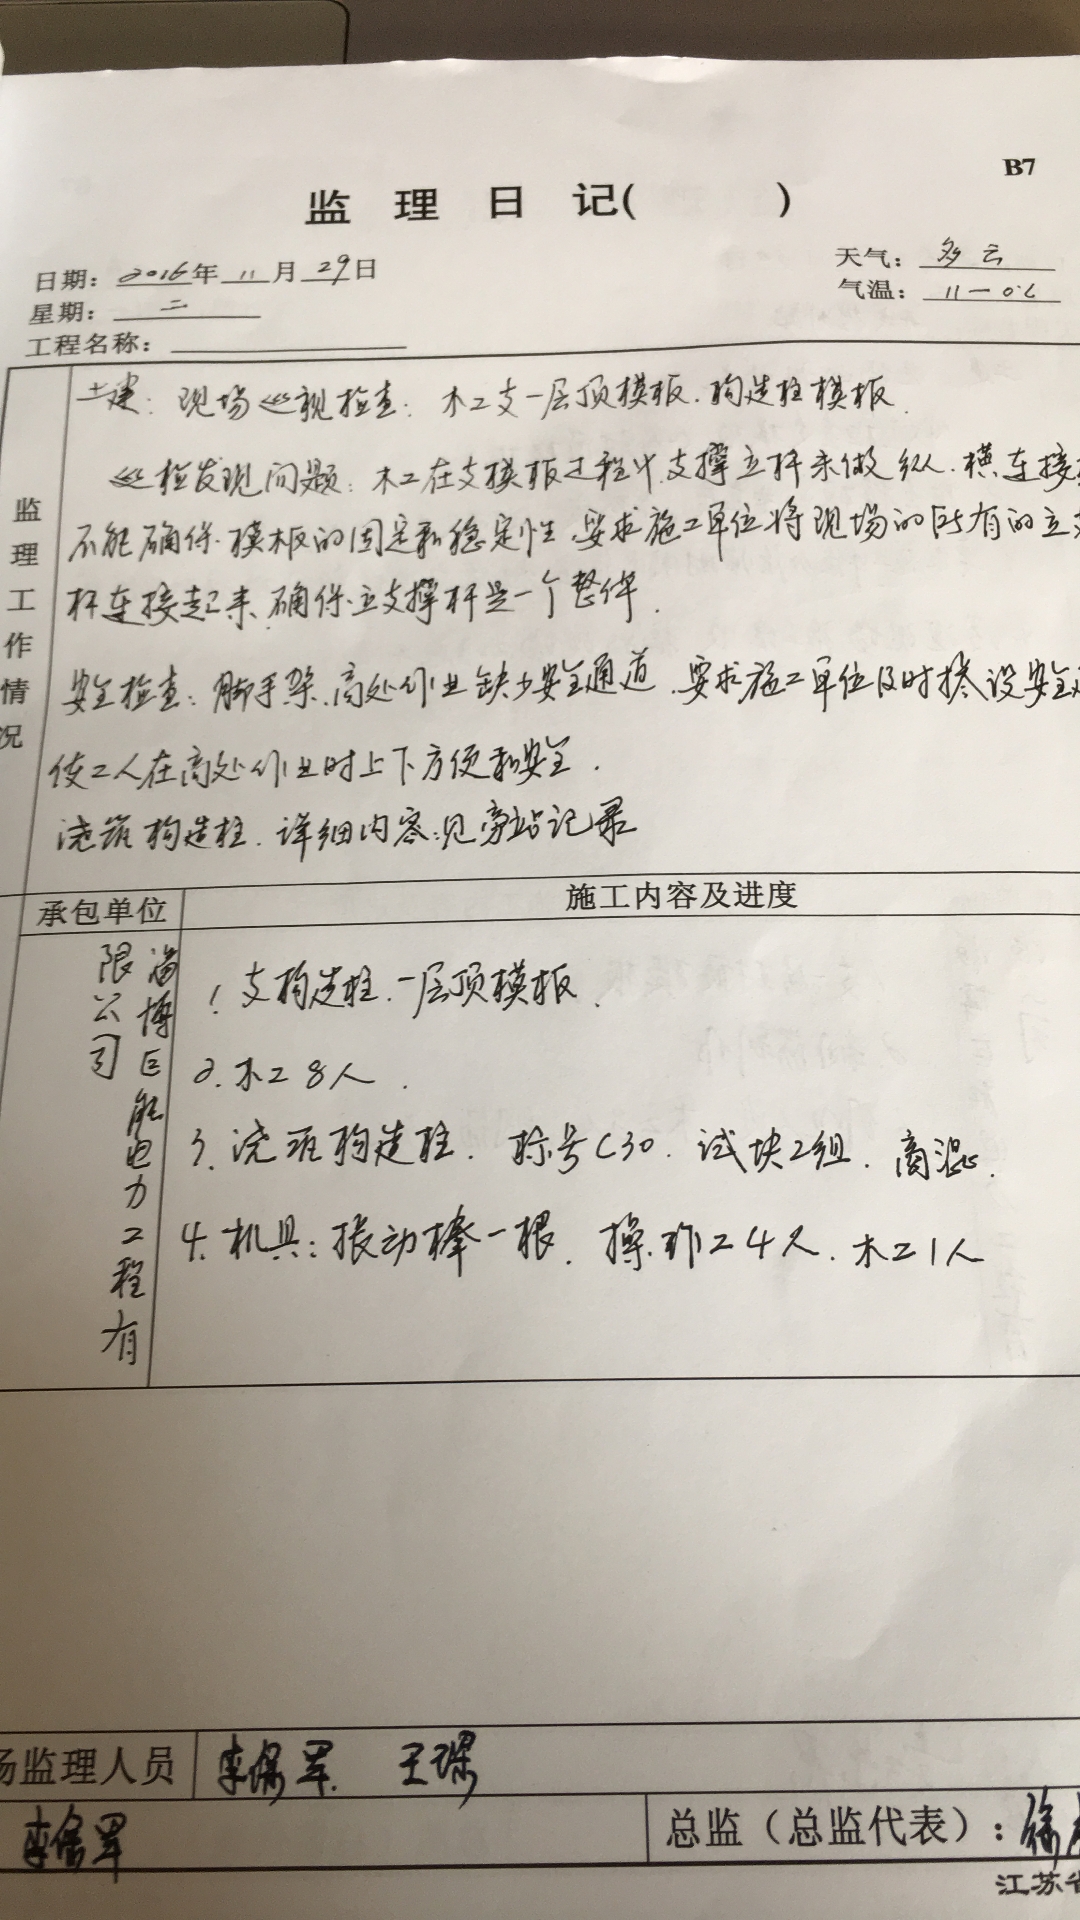 B7
监 理 日 记( )
日期：2016年 11 月 29日
天气：多云
星期：二
气温：11—0℃
工程名称：
监理工作情况
土建：现场巡视检查：木工支一层顶模板.构造柱模板.
巡检发现问题：木工在支模板过程中支撑立杆未做纵.横连接
不能确保.模板的固定和稳定性.要求施工单位将现场的所有的立支
杆连接起来.确保立支撑杆是一个整体.
安全检查：脚手架.高处作业缺少安全通道.要求施工单位及时搭设安全
使工人在高处作业时上下方便和安全.
浇筑构造柱.详细内容:见旁站记录
承包单位
施工内容及进度
淄博巨能电力工程有
限公司
1.支构造柱.一层顶模板.
2.木工8人.
3.浇筑构造柱.标号C30.试块2组.商混.
4.机具：振动棒一根.操作工4人.木工1人
场监理人员
李保军. 王琛
李保军
总监（总监代表）：徐
江苏省